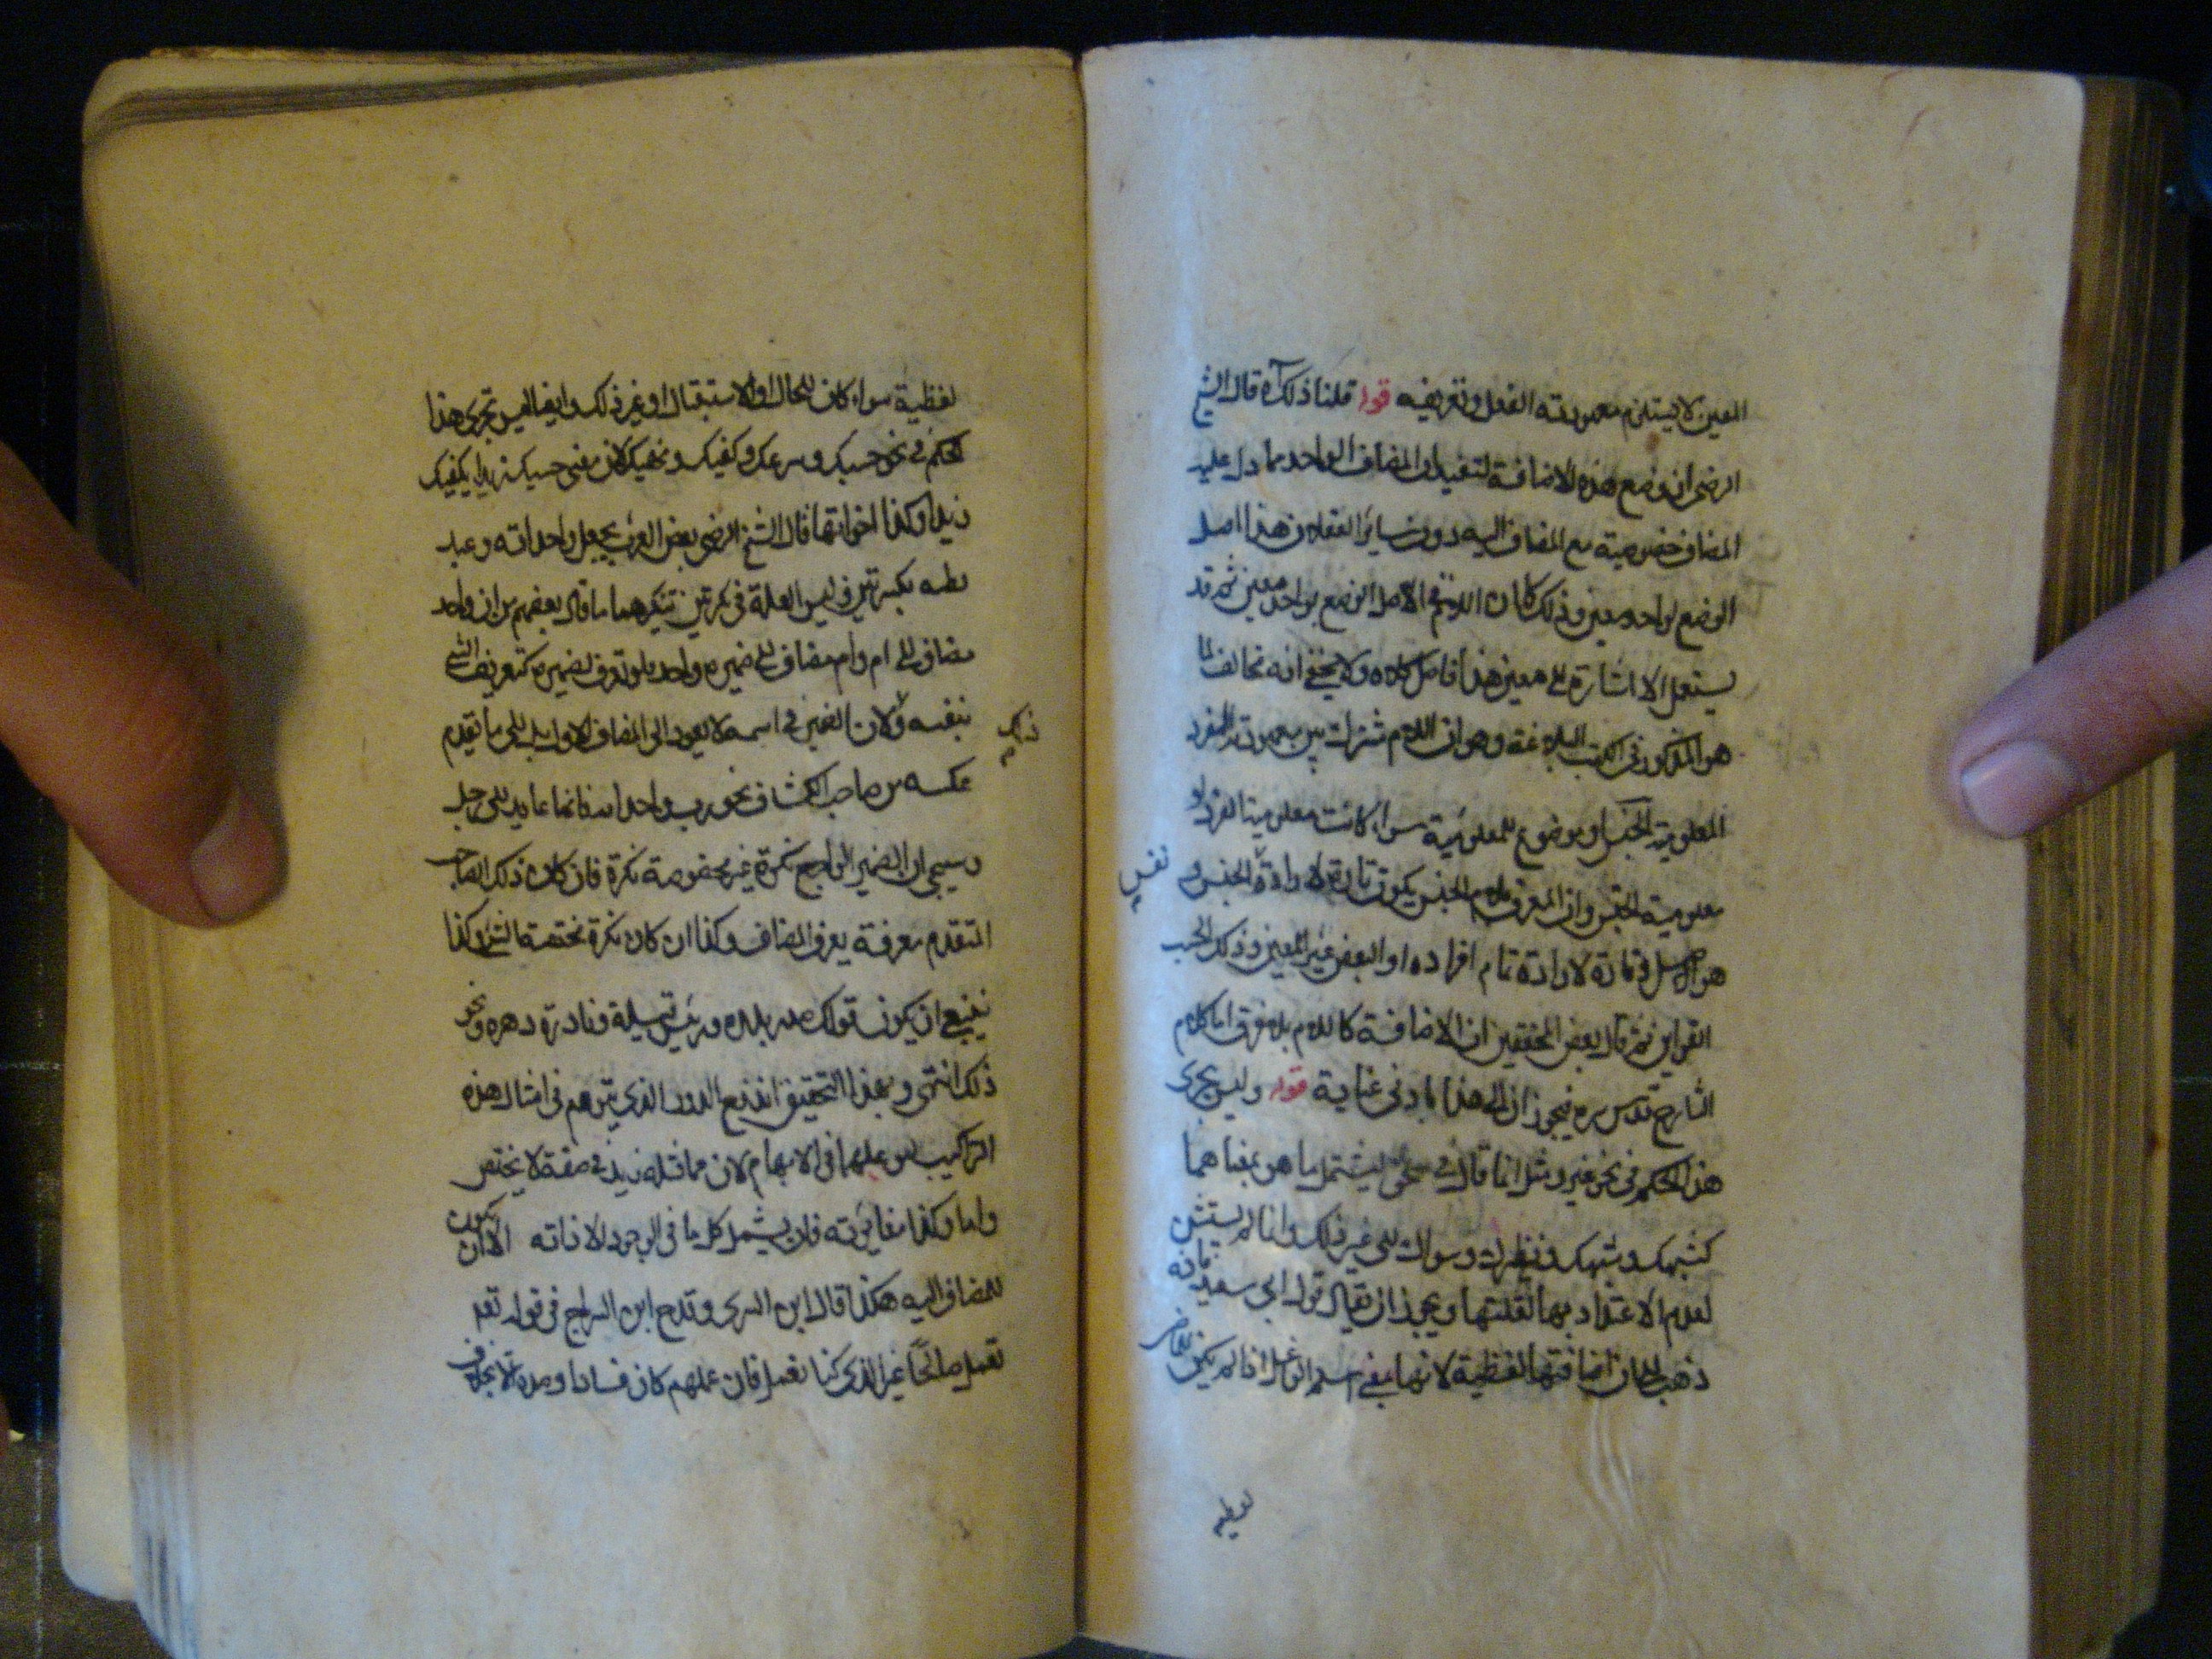 المعين لا يستلزم معهودية الفعل وتعريفه قوله قلنا ذلك اه قال الشيخ
الرضي ان وضع هذه الاضافة لتفيد ان المضاف الواحد مما دل عليه
المضاف خصوصية مع المضاف اليه دون سائر الفقلا هذا اصل
الوضع لواحد معين وذلك كما ان اللام في الاصل الوضع لواحد معين ثم قد
يستعمل الا اشارة الى معين هذا حاصل كلامه ولا يخفى انه مخالف لما
هو المذكور في الكتب البلاغة وهو ان اللام مشترك بين معهودية الفرد
المعلومية الجنس او موضوع للمعلومية سواء كانت معلومية الفرد او
معلومية الجنس وان المعرف بلام الجنس يكون تارة لارادة الجنس و
نفس
هو الاصل وتارة لارادة تمام افراده او البعض غير المعين وذلك بحسب
القراين ثم قال بعض المحققين ان الاضافة كاللام بلا فرق اما كلام
الشارح قدس سره فيجوز ان له هذا بادنى عناية قوله وليس يجرى
هذا الحكم في نحو غير ومثل انما قال في نحو ليشتمل ما هو بمعناهما
كشبهك وشبهك ونظيرك وسواك الى غير ذلك وانما لم يستثن
لعدم الاعتداد بها لقلتها ويجوز ان يقال قوله ابي سعيد فانه
ذهب الى ان اضافتها لفظية لانها بمعنى اسم الفاعل فالم يكن
لفظية
لفظية سواء كان للحال او الاستقبال او غير ذلك وايضا ليس تجرى هذا
الحكم في نحو حسبك وشرعك وكفيك ونهيك لان معنى حسبك زيد يكفيك
زيد وكذا اخواتها قال الشيخ الرضي بعض العرب يجعل واحد امه وعبد
بطنه نكرتين وليس العلة في نكرتين تنكرهما ما قال بعضهم من ان واحد
مضاف الى ام وام مضاف الى ضمير واحد فلو تعرف بضميره كتعريف الشئ
بنفسه ولان الضمير في امه لا يعود الى المضاف الاول بل الى ما تقدم
ذلك
عكسه من صاحب الكشاف نحو رب واحد امه فانما عايد الى رجل
وسيجى ان الضمير الراجع نكرة غير مخصوصة نكرة فان كان ذلك الصاحب
المتقدم معرفة يعرف المضاف وكذا ان كان نكرة مختصة بالشئ وكذا
ينبغي ان يكون قولك صدر بلده ورئيس قبيلة ونادرة دهره ونحو
ذلك انتهى وبهذا التحقيق اندفع الدور الذي يتوهم في امثال هذه
التراكيب لتوغلهما في الابهام لان مماثله زيد في صفة لا يختص
واما وكذا مغايرته فان يشمل كل ما في الوجود الا ذاته الا ان يكون
للمضاف اليه هكذا قال ابن السرى وقدح ابن السراج في قوله تعه
نعمل صالحا غير الذي كنا نعمل فان عملهم كان فسادا وضده